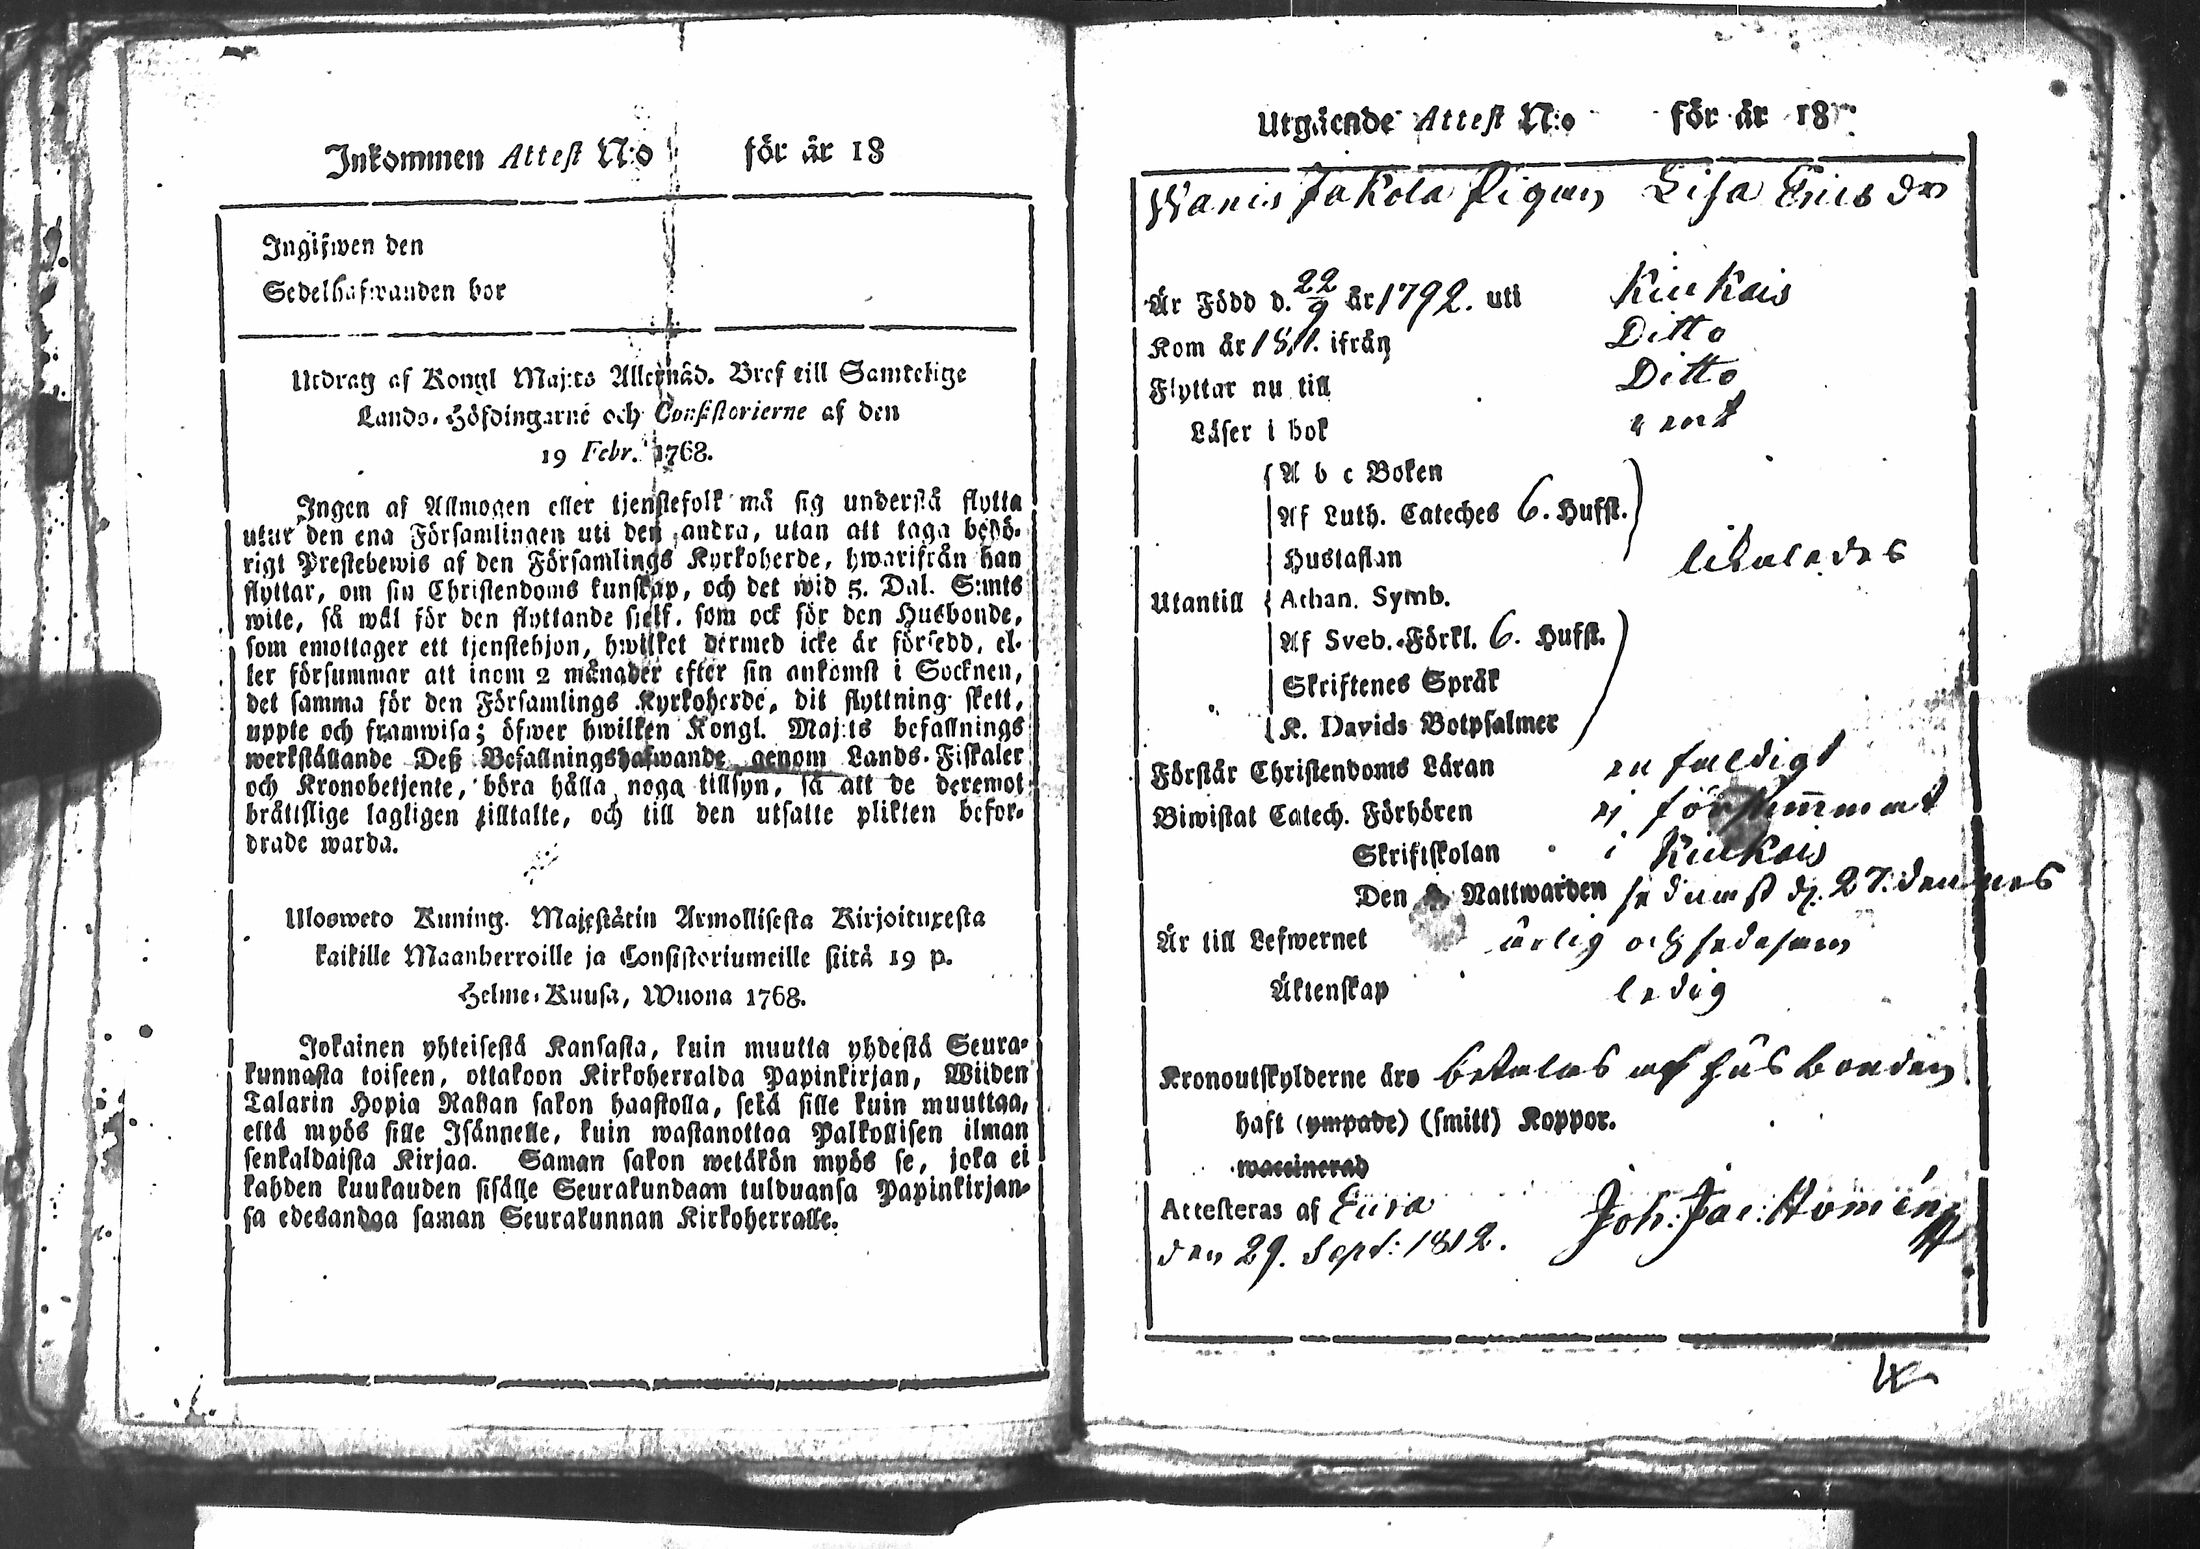 Inkommen Attest N:o för år 18
Ingifwen den
Sedelhafwanden bor
Utdrag af Kongl Maj:ts Allernåd. Bref till Samtelige
Lands-Höfdingarne och Consistorierne af den
19 Febr. 1768.
Ingen af Allmogen eller tjenstefolk må sig understå flytta
utur den ena Församlingen uti den andra, utan att taga behö-
rigt Prestebewis af den Församlings Kyrkoherde, hwarifrån han
flyttar, om sin Christendoms kunskap, och det wid 5. Dal. S:mts
wite, så wäl för den flyttande sjelf, som ock för den Husbonde,
som emottager ett tjenstehjon, hwilket dermed icke är försedd, el-
ler försummar att inom 2 månader efter sin ankomst i Socknen,
det samma för den Församlings Kyrkoherde, dit flyttning skett,
uppte och framwisa; öfwer hwilken Kongl. Maj:ts befallnings
werkställande Deß Befallningshafwande genom Lands-Fiskaler
och Kronobetjente, böra hålla noga tillsyn, så att de deremot
bråttslige lagligen tilltalte, och till den utsatte plikten befor-
drade warda.
Ulosweto Kuning. Majestätin Armollisesta Kirjoituxesta
kaikille Maanherroille ja Consistoriumeille siitä 19 p.
Helme-Kuusa, Wuona 1768.
Jokainen yhteisestä Kansasta, kuin muutta yhdestä Seura-
kunnasta toiseen, ottakoon Kirkoherralda Papinkirjan, Wiiden
Talarin Hopia Rahan sakon haastolla, sekä sille kuin muuttaa,
että myös sille Isännelle, kuin wastanottaa Palkollisen ilman
senkaldaista Kirjaa. Saman sakon wetäkön myös se, joka ei
kahden kuukauden sisälle Seurakundaan tulduansa Papinkirjan-
sa edesandaa saman Seurakunnan Kirkoherralle.
Utgående Attest N:o för år 18
Wanis Jakola Pigan Lisa Ericsdr
Är Född d. 22/9 år 1792. uti Kiukais
Kom år 1811. ifrån Ditto
Flyttar nu till Ditto
Läser i bok rent
A b c Boken
Af Luth. Cateches 6. Hufst.
Hustaflan
likaledes
Utantill Athan. Symb.
Af Sveb. Förkl. 6. Hufst.
Skriftenes Språk
K. Davids Botpsalmer
Förstår Christendoms Läran enfaldigt
Biwistat Catech. Förhören ej försummat
Skriftskolan i Kiukais
Den H. Nattwarden sedamst d. 27. dennes
Är till Lefwernet ärlig och sedesam
Äktenskap ledig
Kronoutskylderne äro betalas af husbonden
haft (ympade) (smitt) Koppor.
waccinerad
Attesteras af Eura Joh: Jac:
den 29. Sept: 1812.